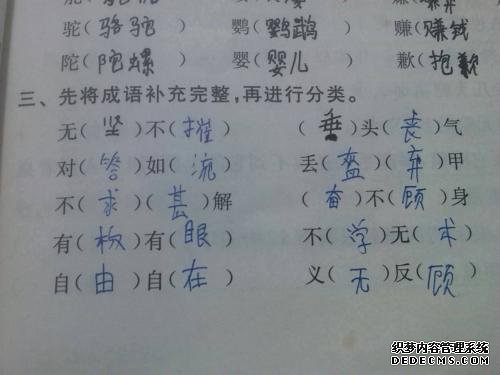 驼(骆驼) 鹦(鹦鹉) 赚(赚钱)
陀(陀螺) 婴(婴儿) 歉(抱歉)
三、先将成语补充完整,再进行分类。
无(坚)不(摧) (垂)头(丧)气
对(答)如(流) 丢(盔)(弃)甲
不(求)(甚)解 (奋)不(顾)身
有(板)有(眼) 不(学)无(术)
自(由)自(在) 义(无)反(顾)
织梦内容管理系统
DEDECMS.COM